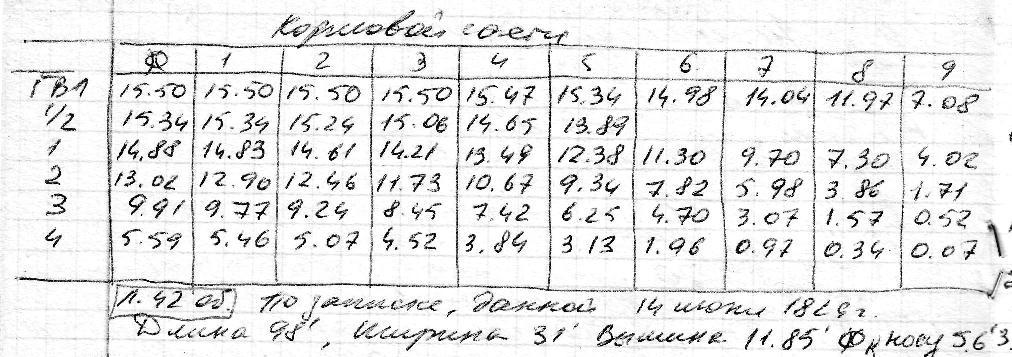 Кормовой части
Ꚛ 1 2 3 4 5 6 7 8 9
ГВЛ 15.50 15.50 15.50 15.50 15.47 15.34 14.98 14.04 11.97 7.08
1/2 15.34 15.34 15.24 15.06 14.65 13.89
1 14.88 14.83 14.61 14.21 13.49 12.38 11.30 9.70 7.30 4.02
2 13.02 12.90 12.46 11.73 10.67 9.34 7.82 5.98 3.86 1.71
3 9.91 9.77 9.24 8.45 7.42 6.25 4.70 3.07 1.57 0.52
4 5.59 5.46 5.07 4.52 3.84 3.13 1.96 0.97 0.34 0.07
л. 42 об. По записке, данной 14 июня г.
Длина 98', ширина 31' Вышина 11.85' к носу 56'3